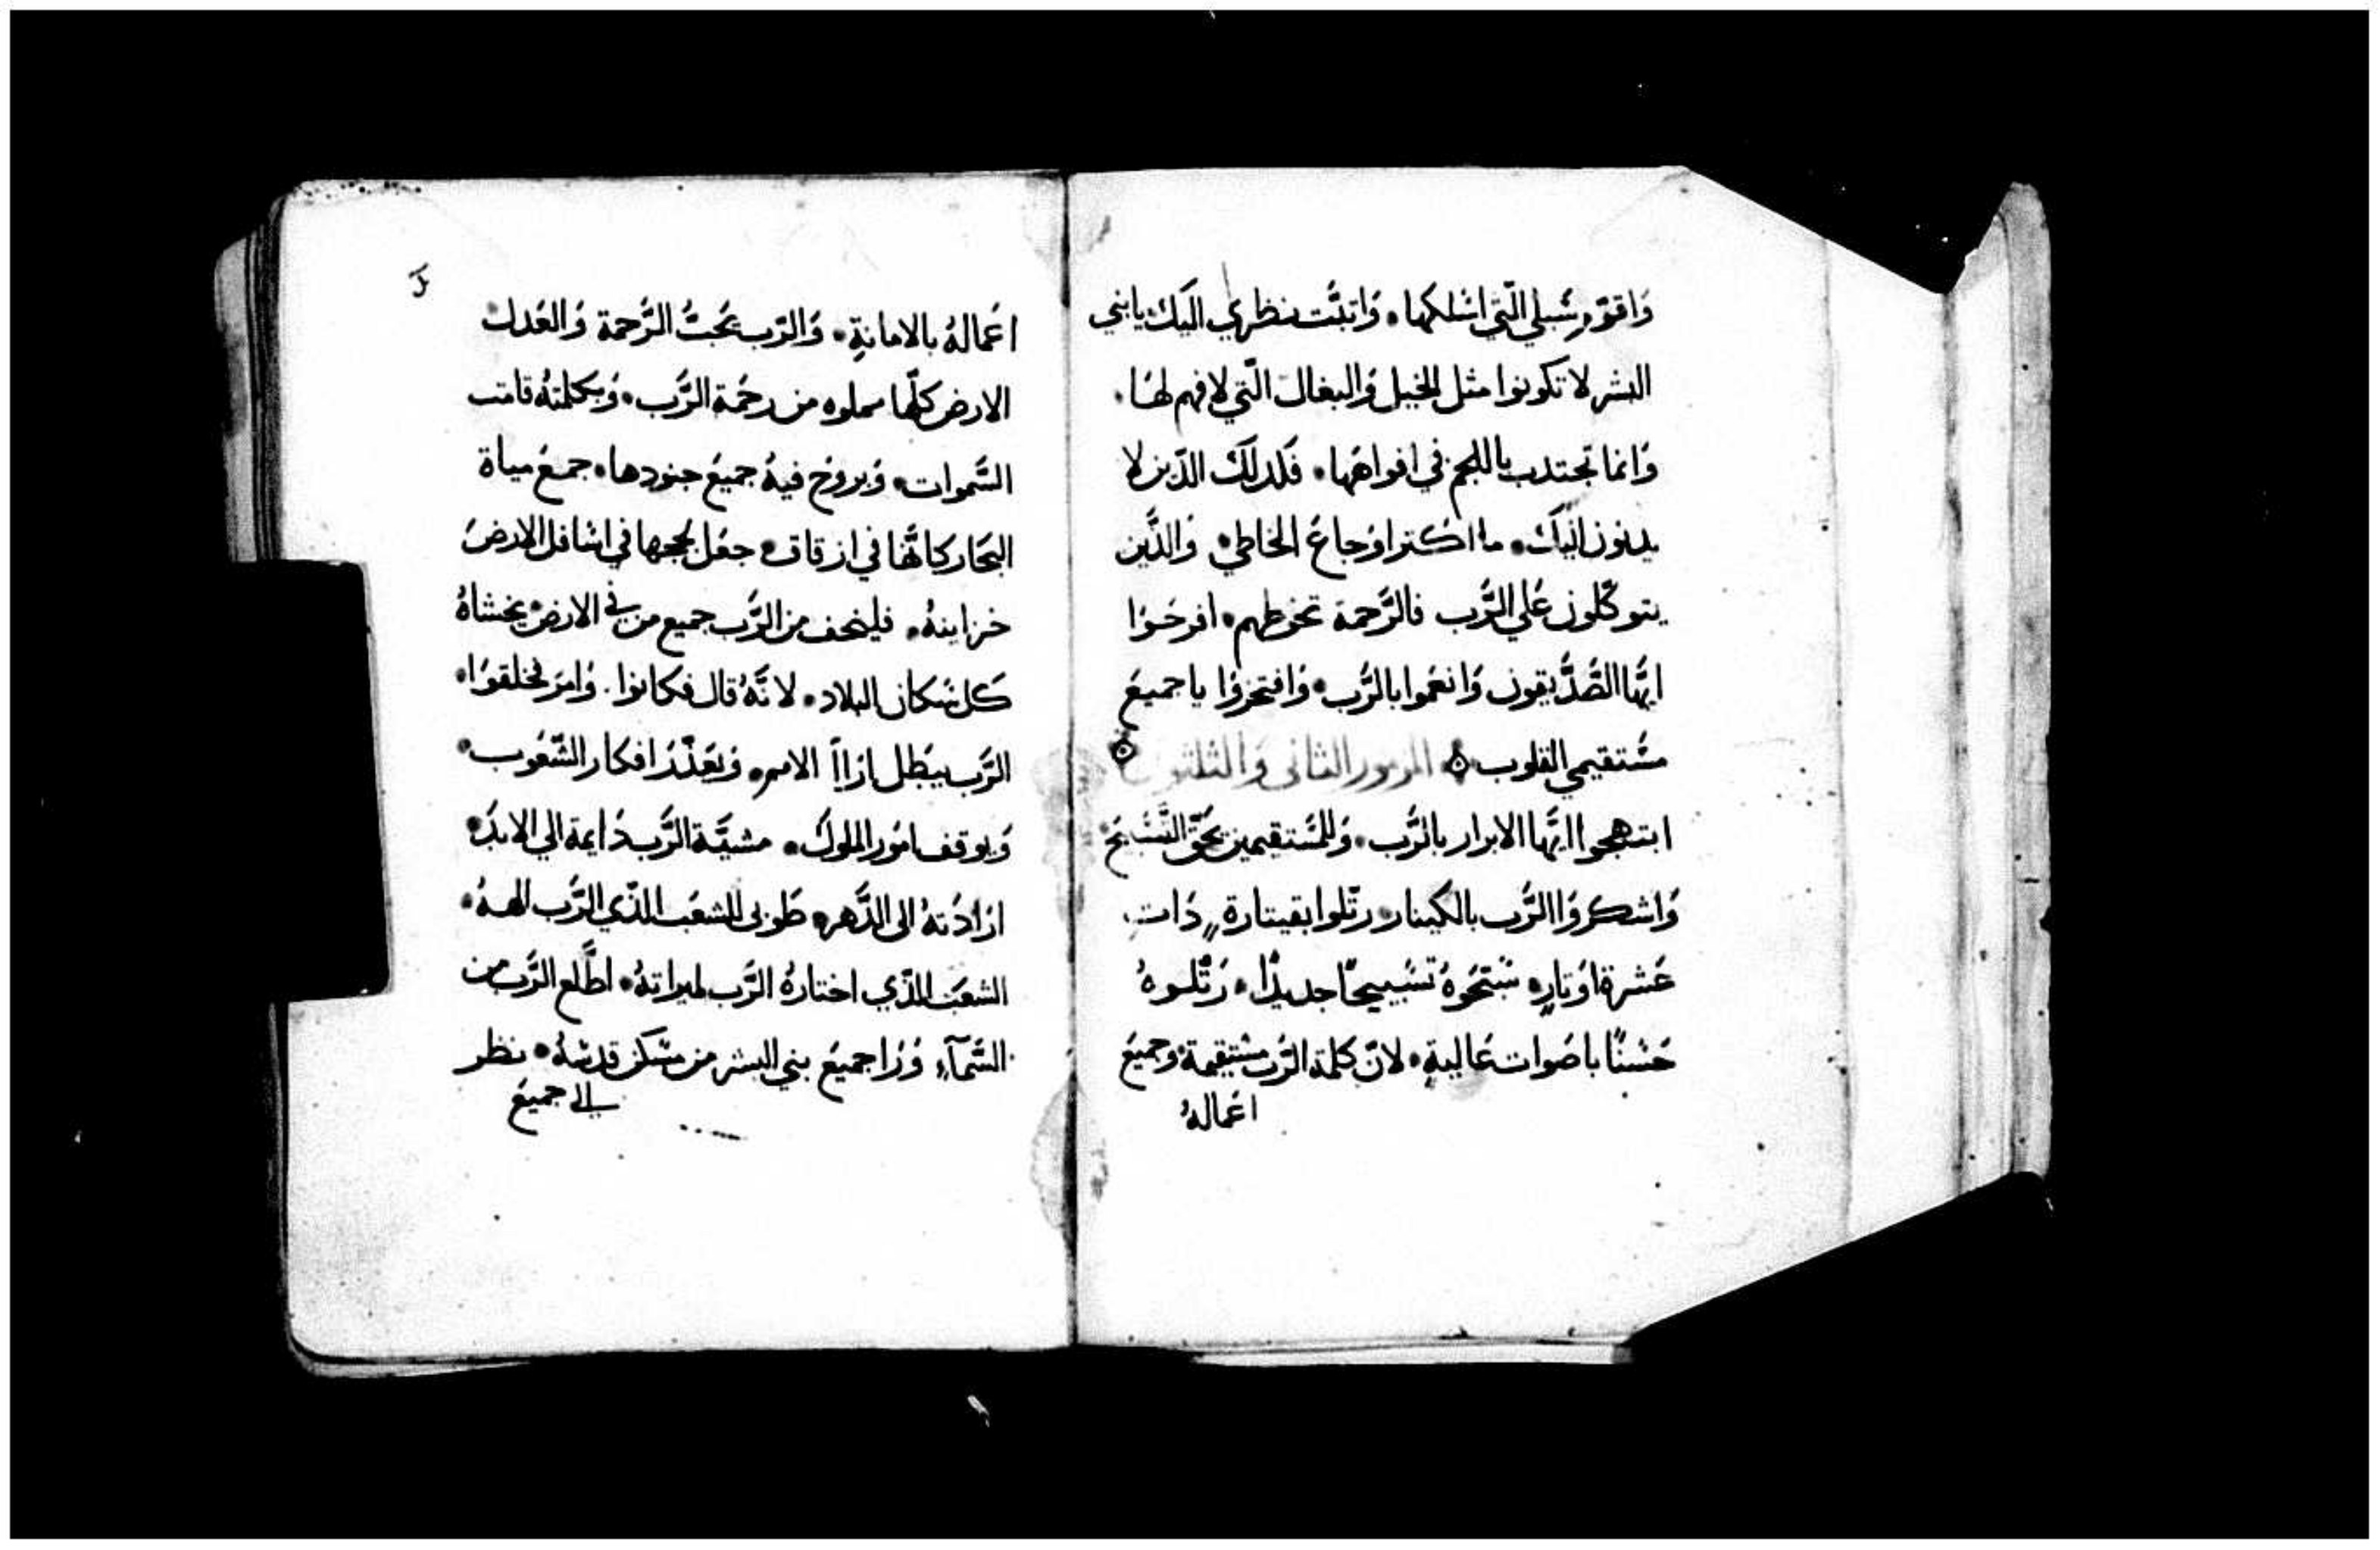 وَاقوّم سُبلي الّتي اسَلكها. وَاتبَّت نظري اليَك يابني
البشر لا تكونوا مثل الخيل وَالبغال الّتي لا فهم لهَا.
وَانما تجتدب باللجم في افواههَا. فَكدلَك الدّين لا
يدنون اليَك. ما اكتر اوَجاعَ الخاطي. وَالدَّين
يتوكّلون عَلي الرَّب فالرَّحمة تحوَطهم. افرحَوُا
ايَّها الصَّدَّيقون وَانعَموا بالرَّب. وَافتخرَوُا يا جميعَ
مسُتقيمي القلوب المزمور الثانى وَالثلثون
ابتهجوا ايَّها الابرار بالرَّب. وَللمسُتقيمين يحَقّ التَّسَبيَح
وَاشكروَا الرَّب بالكينار رتّلوا بقيتارة دَاتِ
عَشرة اوَتارٍ. سَبّحَوهُ تسَبيحًا جديدًا. رَتّلوهُ
حَسَنًا باصَوات عَاليةٍ. لانّ كلمة الرَّب مستقيمة وجميعَ
اعَمالهُ
اعَمالهُ بالامانةٍ. وَالرَّب يحَبُّ الرَّحمة وَالعَدل
الارض كلّها مملوه من رحَمة الرَّب. وَبكلمتهُ قامت
السَّموات. وَبروَح فيهُ جميعَ جنودها. جمعَ مياة
البحَار كانّهَا في ازقاق. جعَل لججها في اسَافل الارضَ
خزاينهُ. فليخف من الرَّب جميع من في الارضَ يخشاهُ
كَل سَكان البلاد. لانَّهُ قال فكانوا. وَامرَ فخلقوَا.
الرَّب يبَطل ارَاا الامم. وَيعَذّرَ افكار الشّعَوب.
وَيوقف امَور الملوَك. مشيَّة الرَّب دَايمة الي الابدَ.
ارَادَتهُ الى الدَّهر. طَوبى للشعَب الّذي الرَّب الههُ.
الشعَب الّذي اختارهُ الرَّب لميراتهُ. اطَّلع الرَّب من
السَّمآء وَرَا جميعَ بني البشر من مسَكن قدسَهُ. نظر
الي جميعَ